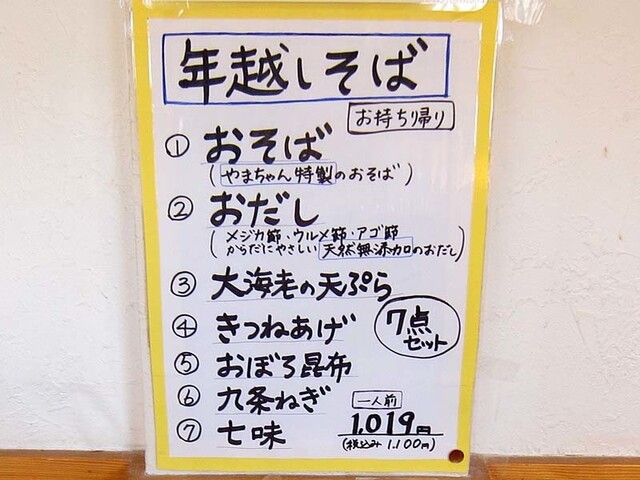 年越しそば
お持ち帰り
① おそば
(やまちゃん特製のおそば)
② おだし
(メジカ節・ウルメ節・アゴ節
からだにやさしい天然無添加のおだし)
③ 大海老の天ぷら
④ きつねあげ
7点
セット
⑤ おぼろ昆布
⑥ 九条ねぎ
⑦ 七味
一人前
1,019円
(税込み1,100円)